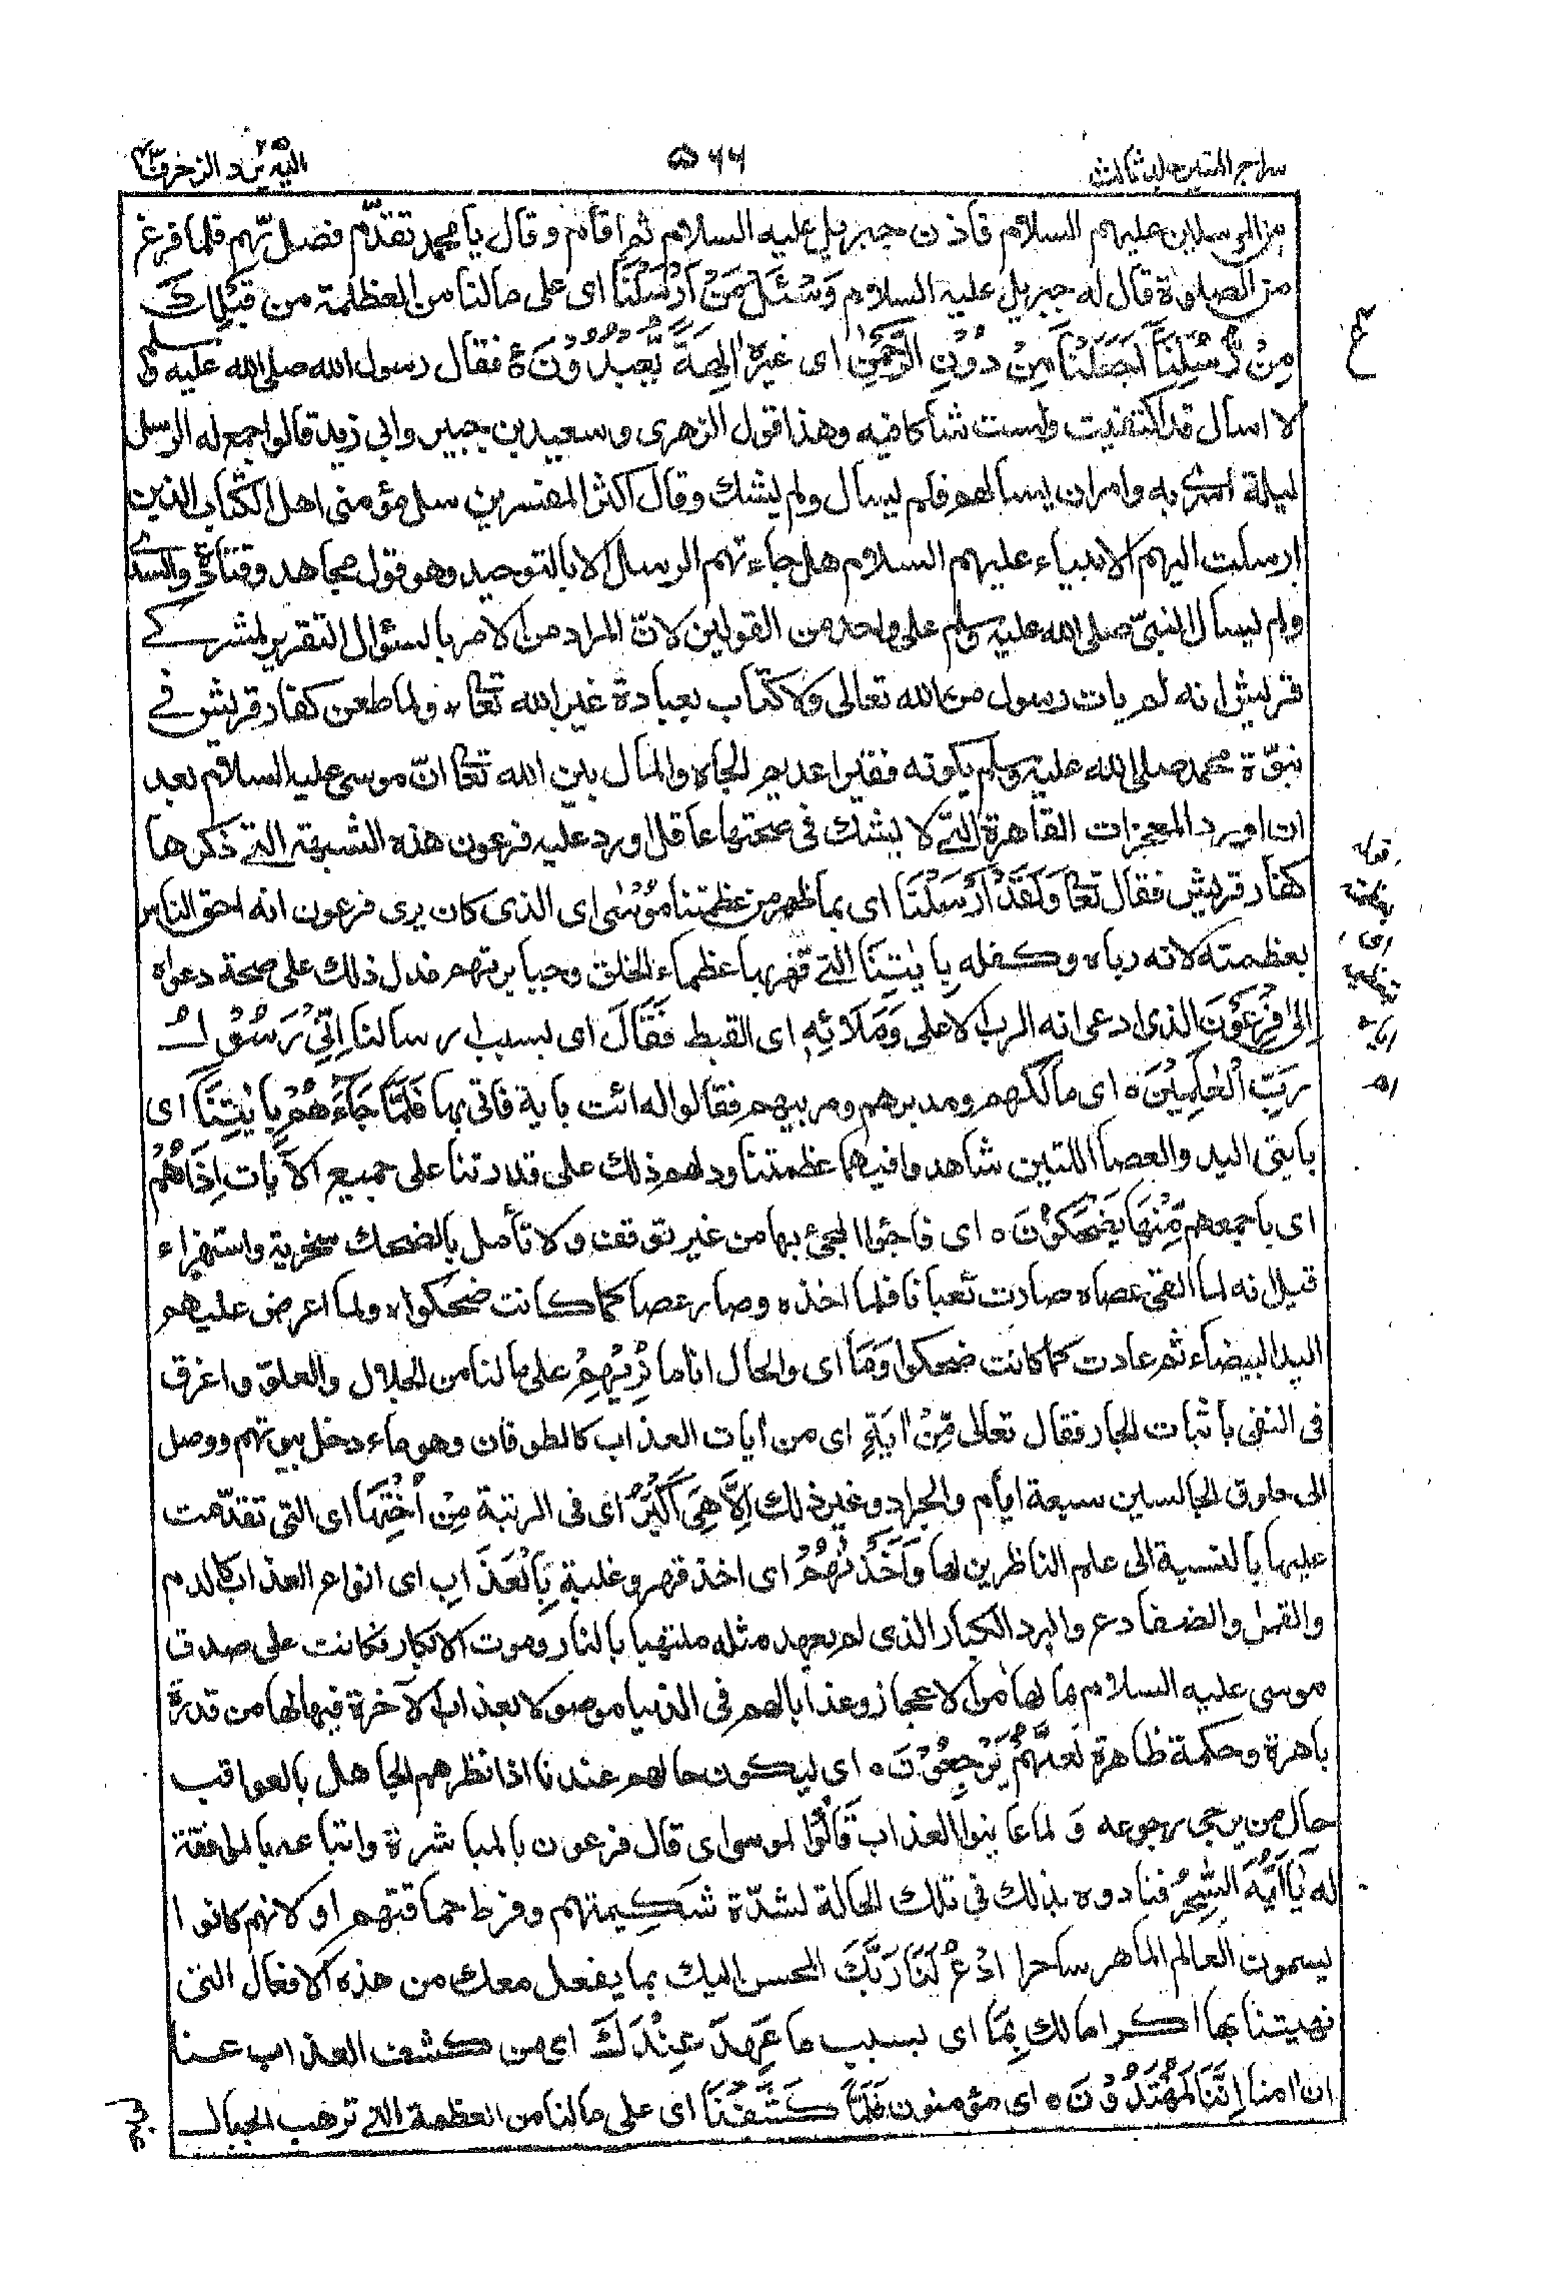 سراج المنير جلد ثالث
٥٦٦
اليه يرد الزخرف
من المرسلين عليهم السلام فاذن جبريل عليه السلام ثم اقام وقال يا محمد تقدّم فصل بهم فلما فرغ
من الصلوة قال له جبريل عليه السلام وَسْئَلْ مَنْ اَرْسَلْنَا اى على مالنا من العظمة من قَبْلِكَ
مِنْ رُّسُلِنَآ اَجَعَلْنَا مِنْ دُوْنِ الرَّحْمٰنِ اى غيره اٰلِهَةً يُّعْبَدُوْنَ فقال رسول الله صلى الله عليه وسلم
لا اسال قد اكتفيت ولست شاكا فيه وهذا قول الزهرى وسعيد بن جبير وابى زيد قالوا جمع له الرسل
ليلة اسرى به وامران يسالهم فلم يسال ولم يشك وقال اكثر المفسرين سل مؤمنى اهل الكتاب الذين
ارسلت اليهم الانبياء عليهم السلام هل جاءتهم الرسل الا بالتوحيد وهو قول مجاهد وقتادة والسدى
ولم يسال النبىّ صلى الله عليه وسلم على واحد من القولين لانّ المراد من الامر بالسؤال التقرير لمشركى
قريش انه لم يات رسول من الله تعالى ولا كتاب بعبادة غير الله تعالى ولما طعن كفار قريش فى
نبوّة محمد صلى الله عليه وسلم بكونه فقيرا عديم الجاه والمال بين الله تعا انّ موسى عليه السلام بعد
ان اورد المعجزات القاهرة التى لا يشك فى صحتها عاقل اورد عليه فرعون هذه الشبهة التى ذكرها
كفار قريش فقال تعا وَلَقَدْ اَرْسَلْنَا اى بما ظهر من عظمتنا مُوْسٰى اى الذى كان يرى فرعون انه احق الناس
بعظمته لانه رباه وكفله بِاٰيٰتِنَآ التى قهر بها عظماء الخلق وجبابرتهم فدل ذلك على صحة دعواه
اِلٰى فِرْعَوْنَ الذى ادعى انه الرب الاعلى وَمَلَائِهٖ اى القبط فَقَالَ اى بسبب رسالنا اِنِّىْ رَسُوْلُ
رَبِّ الْعٰلَمِيْنَ ه اى مالكهم ومدبرهم ومربيهم فقالوا له ائت باية فاتى بها فَلَمَّا جَآءَهُمْ بِاٰيٰتِنَآ اى
بايتى اليد والعصا اللتين شاهدوا فيهما عظمتنا ودلهم ذلك على قدرتنا على جميع الآيات اِذَا هُمْ
اى باجمعهم مِّنْهَا يَضْحَكُوْنَ ه اى فاجئوا المجئ بها من غير توقف ولا تأمل بالضحك سخرية واستهزاء
قيل انه لما القى عصاه صارت ثعبانا فلما اخذه وصار عصا كما كانت ضحكوا ه ولما اعرض عليهم
اليد البيضاء ثم عادت كما كانت ضحكوا وَمَا اى والحال انا ما نُرِيْهِمْ على مالنا من الجلال والعلو واغرق
فى النفى باثبات الجار فقال تعالى مِّنْ اٰيَةٍ اى من ايات العذاب كالطوفان وهو ماء دخل بيوتهم ووصل
الى حلوق الجالسين سبعة ايام والجراد وغير ذلك اِلَّا هِىَ اَكْبَرُ اى فى الرتبة مِنْ اُخْتِهَا اى التى تقدّمت
عليها بالنسبة الى علم الناظرين لها وَاَخَذْنٰهُمْ اى اخذ قهر وغلبة بِالْعَذَابِ اى انواع العذاب كالدم
والقمل والضفادع والبرد الكبار الذى لم يعهد مثله ملتهبا بالنار وموت الابكار فكانت على صدق
موسى عليه السلام بما لها من الاعجاز وعذابا لهم فى الدنيا موصولا بعذاب الآخرة فيها لها من قدرة
باهرة وحكمة ظاهرة لَعَلَّهُمْ يَرْجِعُوْنَ ه اى ليكون حالهم عندنا اذا نظرهم الجاهل بالعواقب
حال من يرجى رجوعه وَ لما عاينوا العذاب قَالُوْا لموسى اى قال فرعون بالمباشرة واتباعه بالموافقة
له يٰٓاَيُّهَ السّٰحِرُ فنادوه بذلك فى تلك الحالة لشدّة شكيمتهم وفرط حماقتهم او لانهم كانوا
يسمون العالم الماهر ساحرا ادْعُ لَنَا رَبَّكَ المحسن اليك بما يفعل معك من هذه الافعال التى
نهيتنا بها اكراما لك بِمَا اى بسبب ما عَهِدَ عِنْدَكَ اى من كشف العذاب عنا
ان امنا اِنَّنَا لَمُهْتَدُوْنَ ه اى مؤمنون فَلَمَّا كَشَفْنَا اى على مالنا من العظمة التى ترهب الجبال
ع
قوله
اى